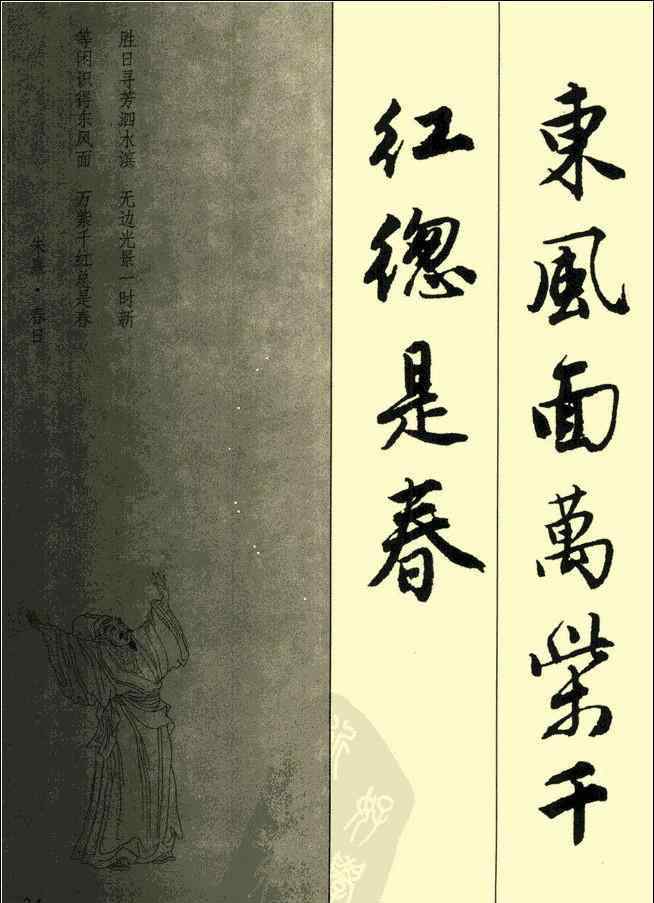 東風面萬紫千
紅總是春
胜日寻芳泗水滨 无边光景一时新
等闲识得东风面 万紫千红总是春
朱熹·春日